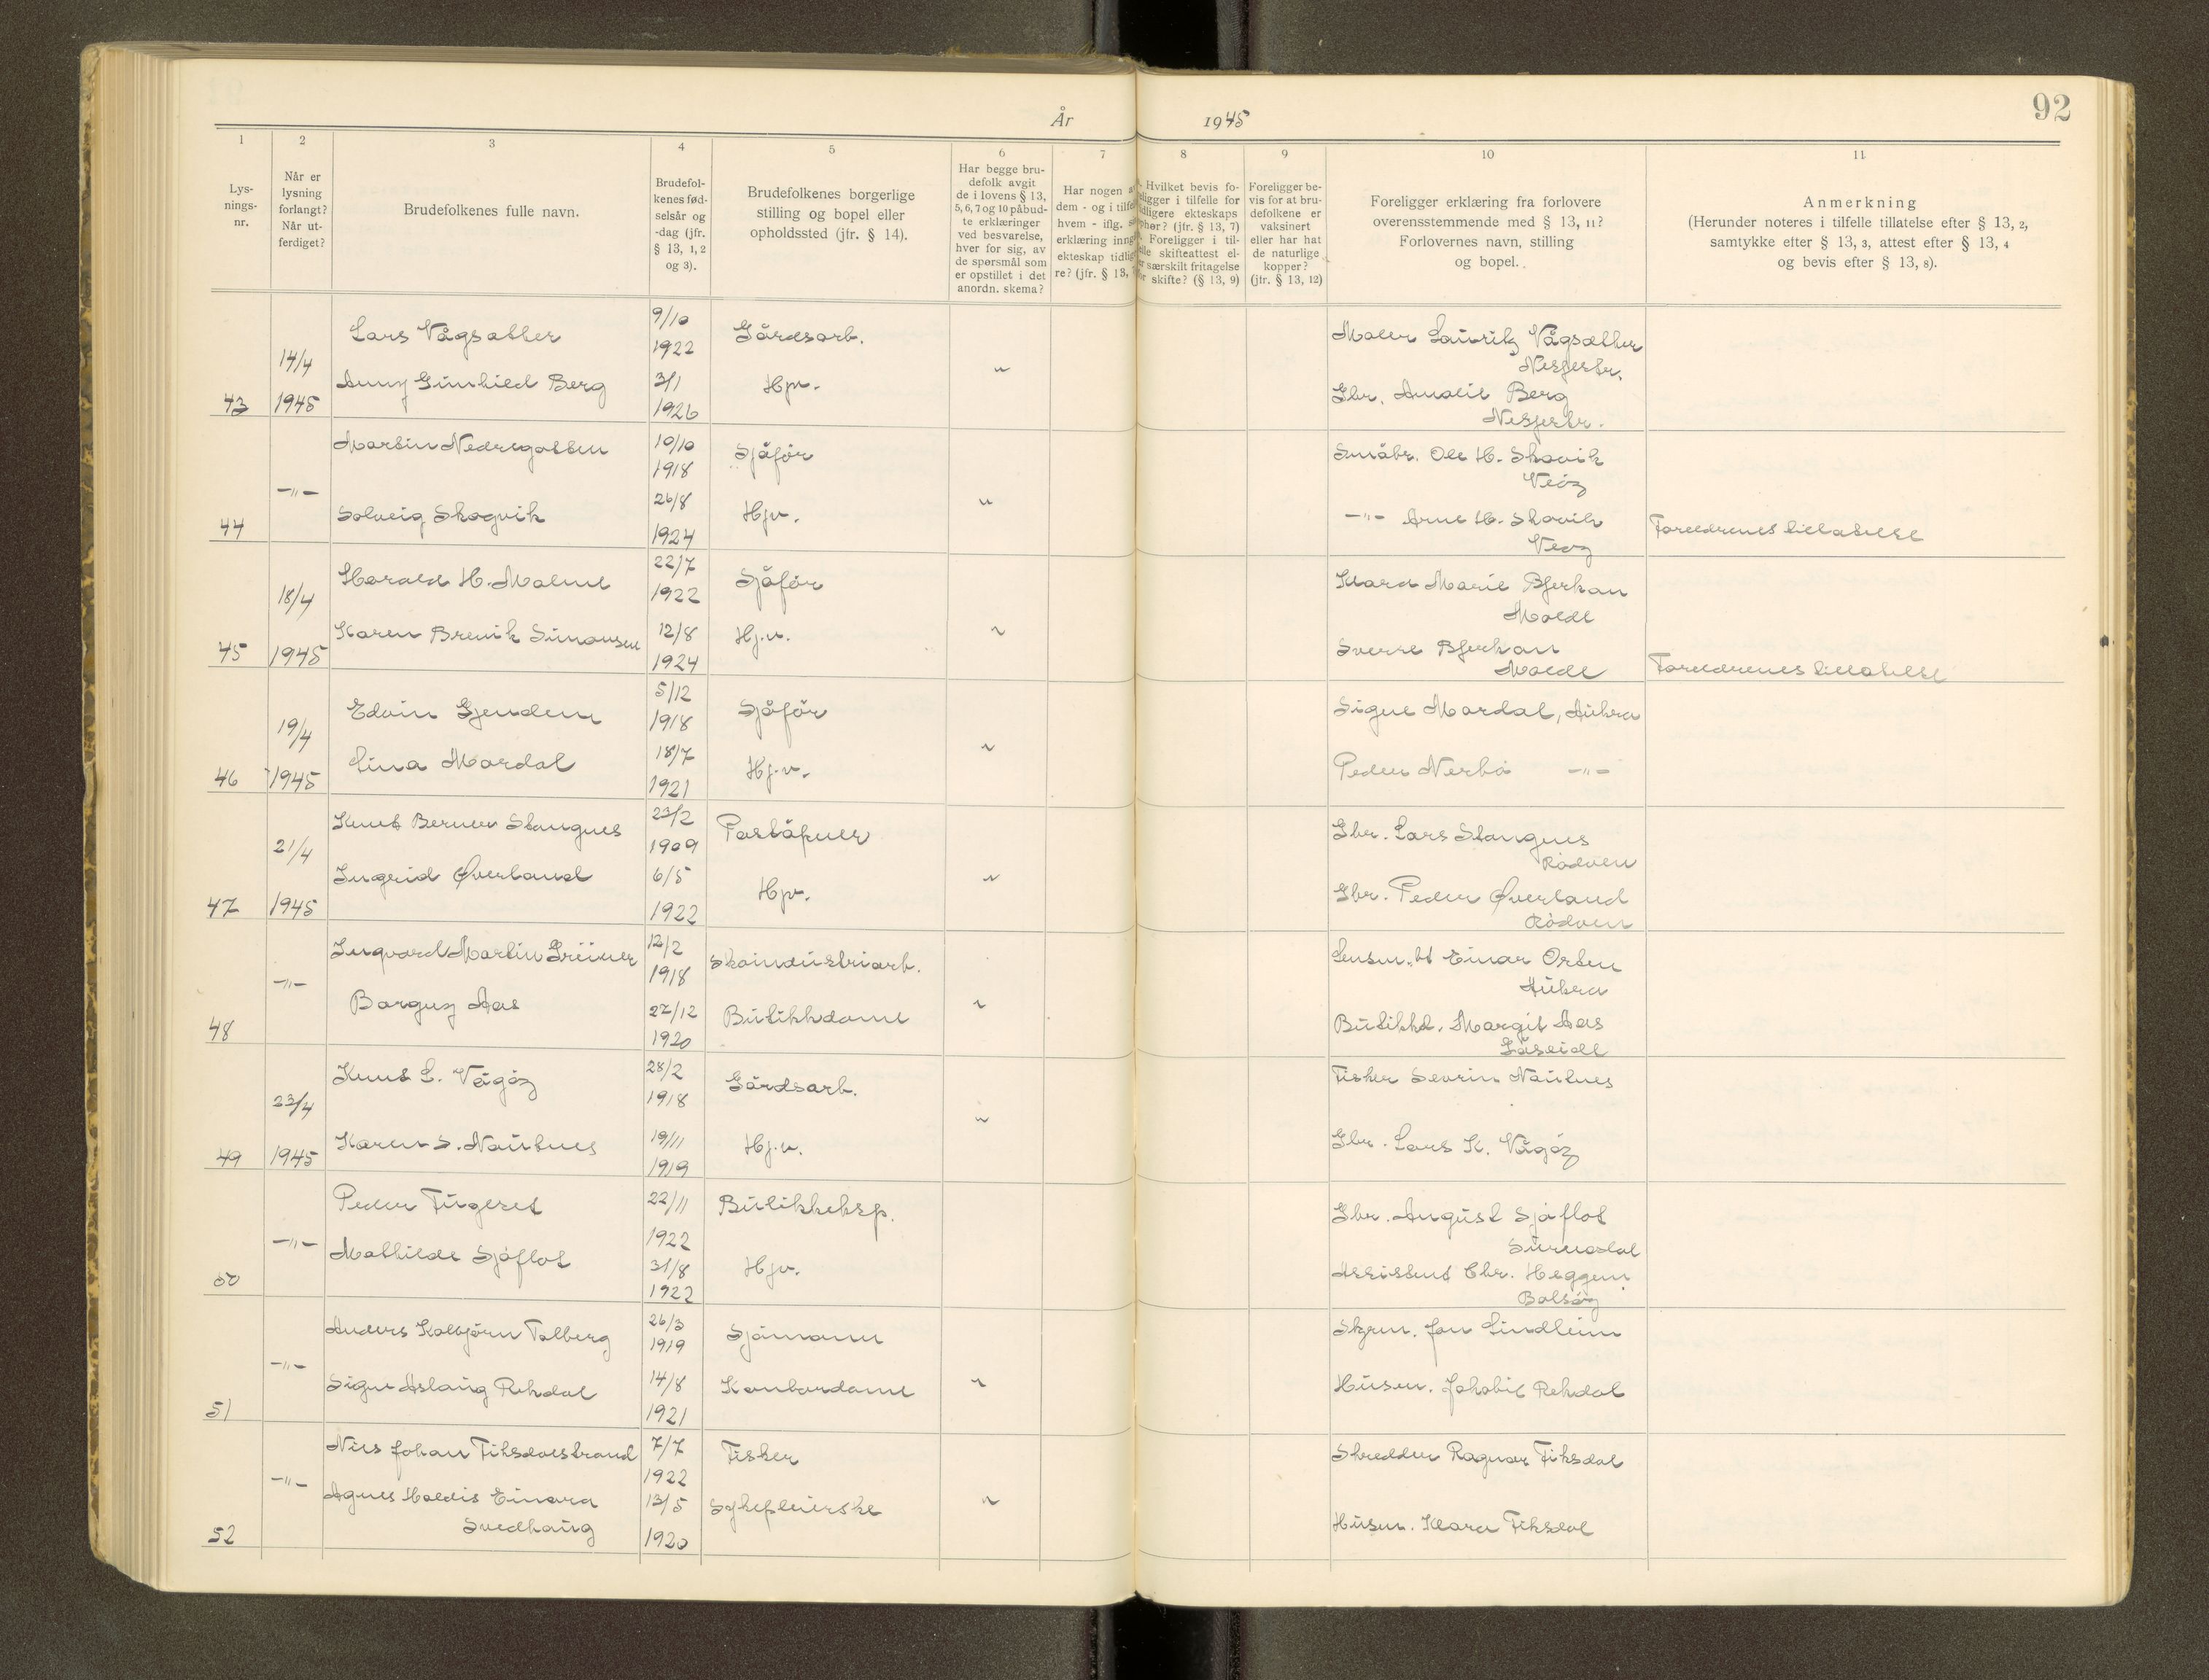 92
År 1945
1 2 3 4 5 6 7 8 9 10 11
Lys-
nings-
nr.
Når er
lysning
forlangt?
Når ut-
ferdiget?
Brudefolkenes fulle navn.
Brudefol-
kenes fød-
selsår og
-dag (jfr.
§ 13, 1, 2
og 3).
Brudefolkenes borgerlige
stilling og bopel eller
opholdssted (jfr. § 14).
Har begge bru-
defolk avgit
de i lovens § 13,
5, 6, 7 og 10 påbud-
te erklæringer
ved besvarelse,
hver for sig, av
de spørsmål som
er opstillet i det
anordn. skema?
Har nogen
dem - og i
hvem - iflg.
erklæring
ekteskap
re? (jfr. § 13,
Hvilket bevis fo-
i tilfelle for
ekteskaps
(jfr. § 13, 7)
Foreligger i til-
skifteattest el-
særskilt fritagelse
skifte? (§ 13, 9)
Foreligger be-
vis for at bru-
defolkene er
vaksinert
eller har hat
de naturlige
kopper?
(jfr. § 13, 12)
Foreligger erklæring fra forlovere
overensstemmende med § 13, 11?
Forlovernes navn, stilling
og bopel.
Anmerkning
(Herunder noteres i tilfelle tillatelse efter § 13, 2,
samtykke efter § 13, 3, attest efter § 13, 4
og bevis efter § 13, 8).
43 14/4 1945
Lars Vågsæther 9/10 1922 Gårdsarb.
Anny Gunhild Berg 3/1 1926 Hjv.
Maler Lauritz Vågsæther
Nesjestr.
Gbr. Amalie Berg
Nesjestr.
44 -"-
Martin Nedregotten 10/10 1918 Sjåfør
Solveig Skogvik 26/8 1924 Hjv.
Småbr. Ole H. Skovik
Veøy
-"- Arne H. Skovik
Veøy
Foreldrenes tillatelse
45 18/4 1945
Harald H. Malme 22/7 1922 Sjåfør
Karen Brevik Simonsen 12/8 1924 Hj.v.
Klara Marie Bjerkan
Molde
Sverre Bjerkan
Molde
Foreldrenes tillatelse
46 19/4 1945
Edvin Gjendem 5/12 1918 Sjåfør
Lina Mordal 18/7 1921 Hj.v.
Signe Mordal, Aukra
Peder Nerbø -"-
47 21/4 1945
Knut Berner Stangnes 23/2 1909 Poståpner
Ingrid Øverland 6/5 1922 Hjv.
Gbr. Lars Stangnes
Rødven
Gbr. Peder Øverland
Rødven
48 -"-
Ingvard Martin Grüner 12/2 1918 Skoindustriarb.
Borguy Aas 22/12 1920 Butikkdame
Lensm.bt Einar Orten
Aukra
Butikkd. Margit Aas
Gåseide
49 23/4 1945
Knut L. Vågøy 28/2 1918 Gårdsarb.
Karen S. Nautnes 19/11 1919 Hj.v.
Fisker Sevrin Nautnes
Gbr. Lars K. Vågøy
50 -"-
Peder Tugeset 22/11 1922 Butikkeksp.
Mathilde Sjøflot 31/8 1922 Hjv.
Gbr. August Sjøflot
Surnadal
Assistent Chr. Heggem
Bolsøy
51 -"-
Anders Kolbjørn Talberg 26/3 1919 Sjømann
Signe Aslaug Rekdal 14/8 1921 Kontordame
Skrm. Jon Lindheim
Husm. Jakobie Rekdal
52 -"-
Nils Johan Fiksdalstrand 7/7 1922 Fisker
Agnes Haldis Einara 13/5 Sykepleierske
Svedhaug 1920
Skredder Ragnar Fiksdal
Husm. Klara Fiksdal